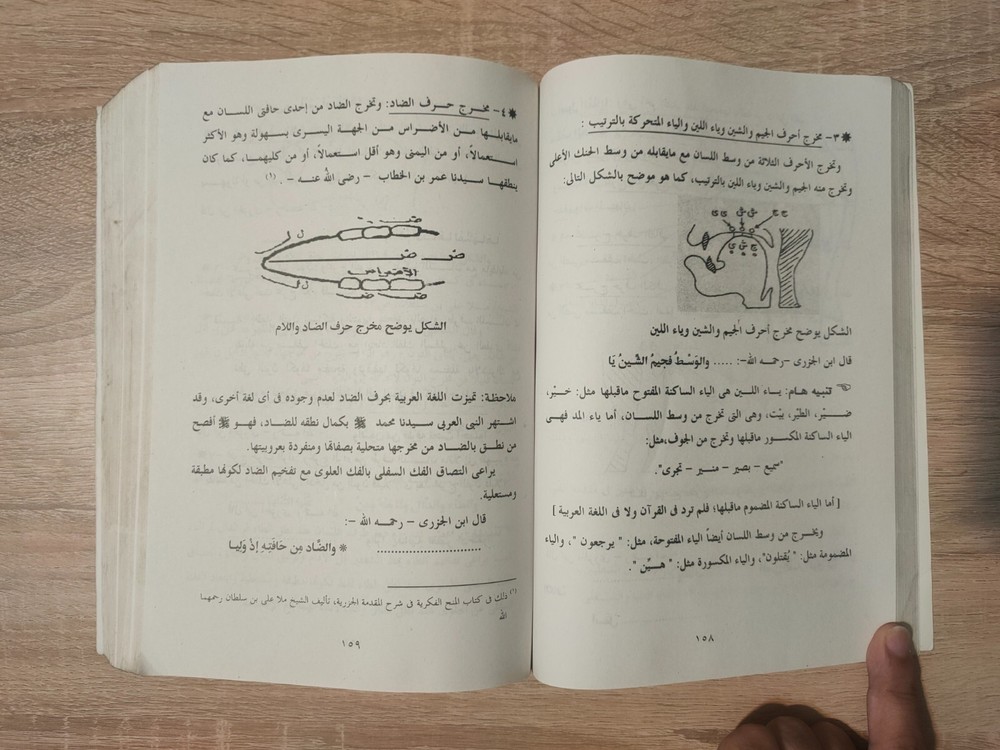 * ٣- مخرج أحرف الجيم والشين وياء اللين والياء المتحركة بالترتيب :
وتخرج الأحرف الثلاثة من وسط اللسان مع مايقابله من وسط الحنك الأعلى
وتخرج منه الجيم والشين وياء اللين بالترتيب، كما هو موضح بالشكل التالى:
الشكل يوضح مخرج أحرف الجيم والشين وياء اللين
قال ابن الجزرى –رحمه الله–: ..... والوَسْطُ فجيمُ الشِّينُ يَا
تنبيه هام: يـاء اللـين هى الياء الساكنة المفتوح ماقبلها مثل: خَـيْر،
ضَـيْر، الطَّيْر، بَيْت، وهى التى تخرج من وسط اللسـان، أما ياء المد فهـى
الياء الساكنة المكسور ماقبلها وتخرج من الجوف،مثل:
"سميع – بصير – منـير – تجرى".
[ أما الياء الساكنة المضموم ماقبلها؛ فلم ترد فى القرآن ولا فى اللغة العربية ]
ويخـرج من وسط اللسان أيضاً الياء المفتوحة، مثل: " يرجعون "، والياء
المضمومة مثل: " يُقتلون"، والياء المكسورة مثل: " هـيِّن ".
١٥٨
* ٤- مخـرج حـرف الضاد: وتخرج الضاد من إحدى حافتى اللسـان مع
مايقابلـها مـن الأضـراس مـن الجهة اليسـرى بسـهولة وهو الأكثر
اسـتعمالاً، أو من اليمنى وهو أقل استعمالاً، أو من كليهمـا، كما كان
ينطقهـا سـيدنا عمر بن الخطاب – رضى الله عنـه – . (١)
ض
ل
ض ض
الأضراس
ل
ض ض
الشكل يوضح مخرج حرف الضاد واللام
ملاحظة: تميزت اللغة العربية بحرف الضاد لعدم وجوده فى أى لغة أخرى، وقد
اشتهر النبى العربى سيدنا محمد ﷺ بكمال نطقه للضاد، فهـو ﷺ أفصح
من نطـق بالضـاد من مخرجها متحلية بصفاتها ومنفردة بعروبيتها.
يراعى التصاق الفك السفلى بالفك العلوى مع تفخيم الضاد لكونها مطبقة
ومستعلية.
قال ابن الجزرى – رحمـه الله –:
............................ * والضَّاد مِن حَافَتِهِ إذْ وَلِيـا
(١) ذلك فى كتاب المنح الفكرية فى شرح المقدمة الجزرية، تأليف الشيخ ملا على بن سلطان رحمهما
الله
١٥٩